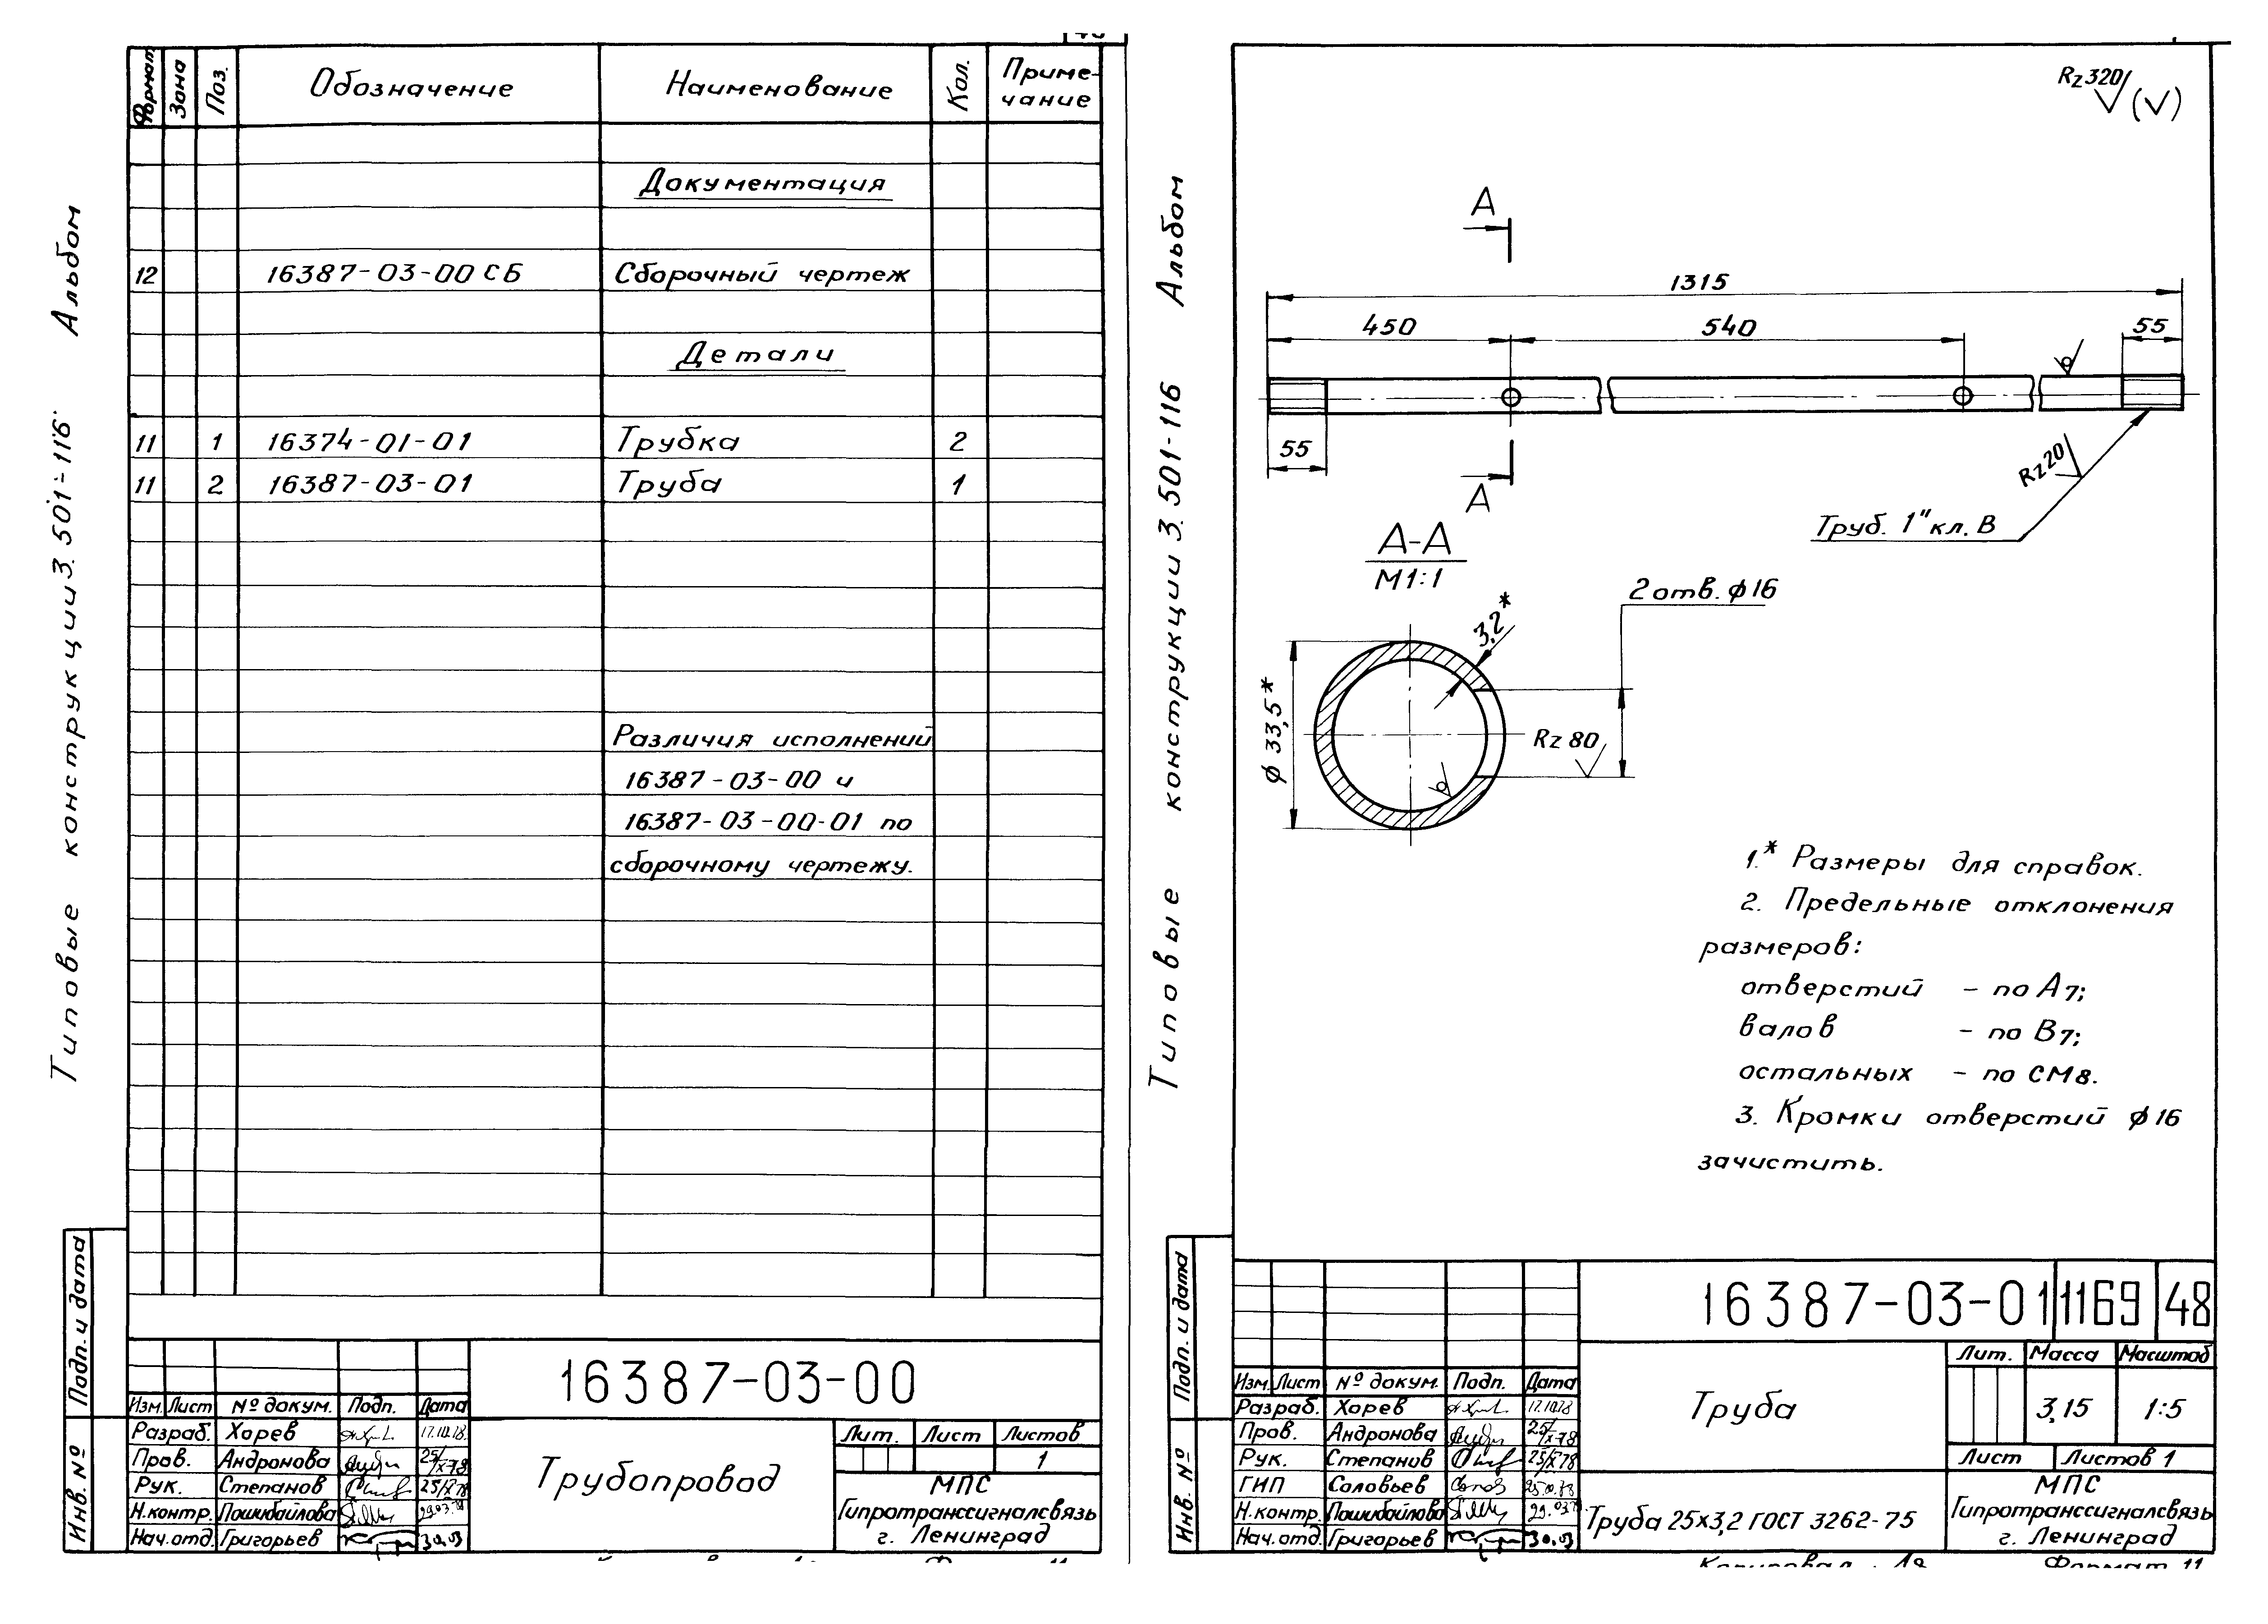 Формат
Зона
Поз.
Обозначение
Наименование
Кол.
Приме-
чание
Документация
12 16387-03-00 СБ Сборочный чертеж
Детали
11 1 16374-01-01 Трубка 2
11 2 16387-03-01 Труба 1
Различия исполнений
16387-03-00 и
16387-03-00-01 по
сборочному чертежу.
Типовые конструкции 3.501-116 Альбом
Подп. и дата
Инв. №
16387-03-00
Изм. Лист № докум. Подп. Дата
Разраб. Харев 17.10.78
Пров. Андронова 25/X-78
Рук. Степанов 25/X-78
Н.контр. Пашибайлова
Нач.отд. Григорьев 30.03
Трубопровод
Лит. Лист Листов
1
МПС
Гипротранссигналсвязь
г. Ленинград
Типовые конструкции 3.501-116 Альбом
Rz320 (√)
А
1315
450 540 55
55
А
Rz20
Труб. 1" кл. В
А-А
М1:1
2 отв. ϕ16
3,2*
ϕ 33,5*
Rz 80
1.* Размеры для справок.
2. Предельные отклонения
размеров:
отверстий – по А7;
валов – по В7;
остальных – по СМ8.
3. Кромки отверстий ϕ16
зачистить.
Подп. и дата
Инв. №
16387-03-01 1169 48
Изм. Лист № докум. Подп. Дата
Разраб. Харев 17.10.78
Пров. Андронова 25/X-78
Рук. Степанов 25/X-78
ГИП Соловьев
Н.контр. Пашибайлова
Нач.отд. Григорьев 30.03
Труба
Лит. Масса Масштаб
3,15 1:5
Лист Листов 1
Труба 25х3,2 ГОСТ 3262-75
МПС
Гипротранссигналсвязь
г. Ленинград
Копировал
Формат 11